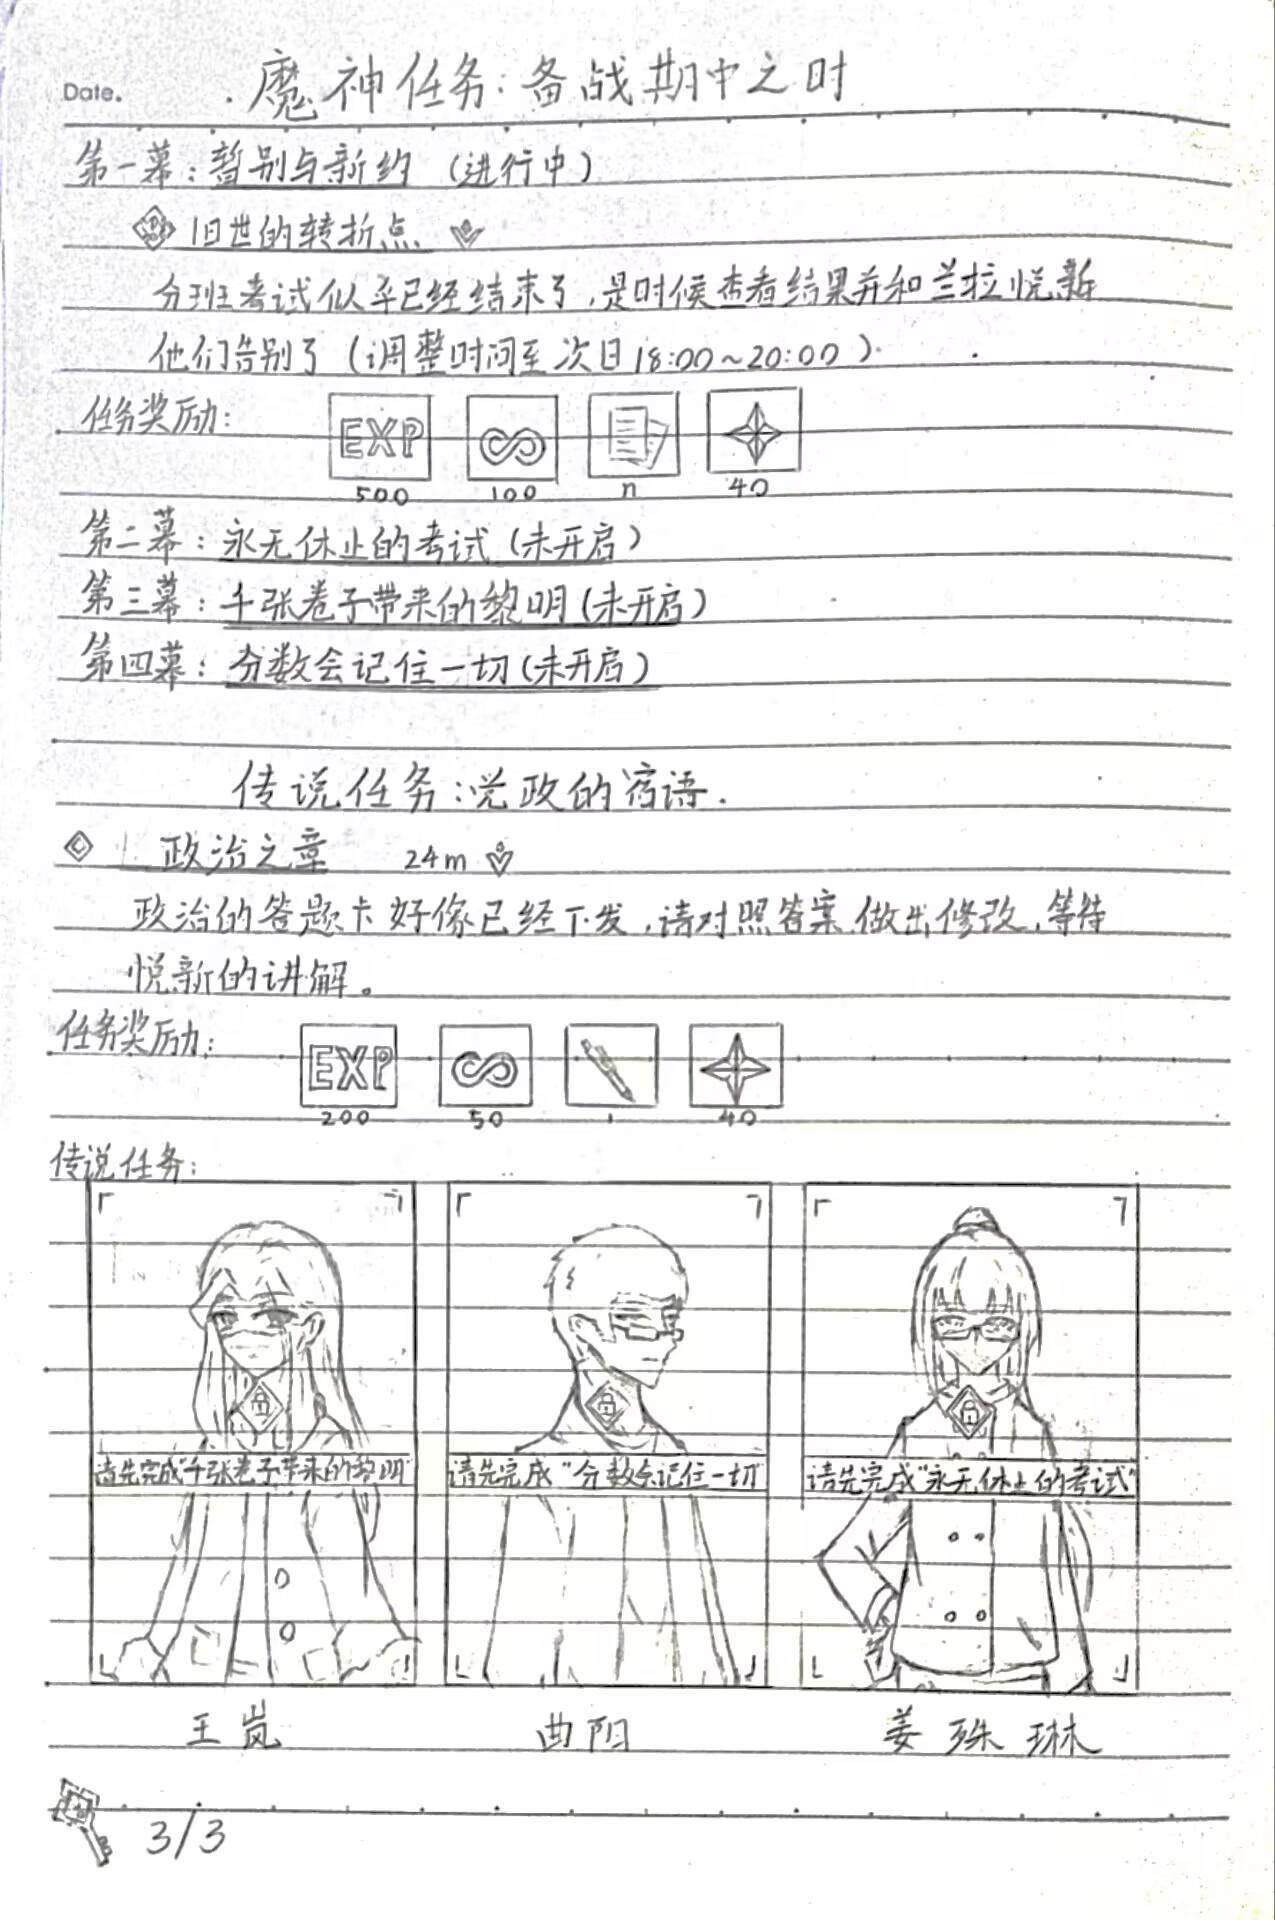 Date.
魔神任务：备战期中之时
第一幕：暂别与新约（进行中）
旧世的转折点
分班考试似乎已经结束了，是时候查看结果并和兰拉悦新
他们告别了（调整时间至次日18:00~20:00）.
任务奖励：
EXP
500 100 n 40
第二幕：永无休止的考试（未开启）
第三幕：千张卷子带来的黎明（未开启）
第四幕：分数会记住一切（未开启）
传说任务：党政的宿语.
政治之章 24m
政治的答题卡好像已经下发，请对照答案做出修改，等待
悦新的讲解。
任务奖励：
EXP
200 50 1 40
传说任务：
请先完成“千张卷子带来的黎明”
请先完成“分数会记住一切”
请先完成“永无休止的考试”
王岚 曲阳 姜殊琳
3/3